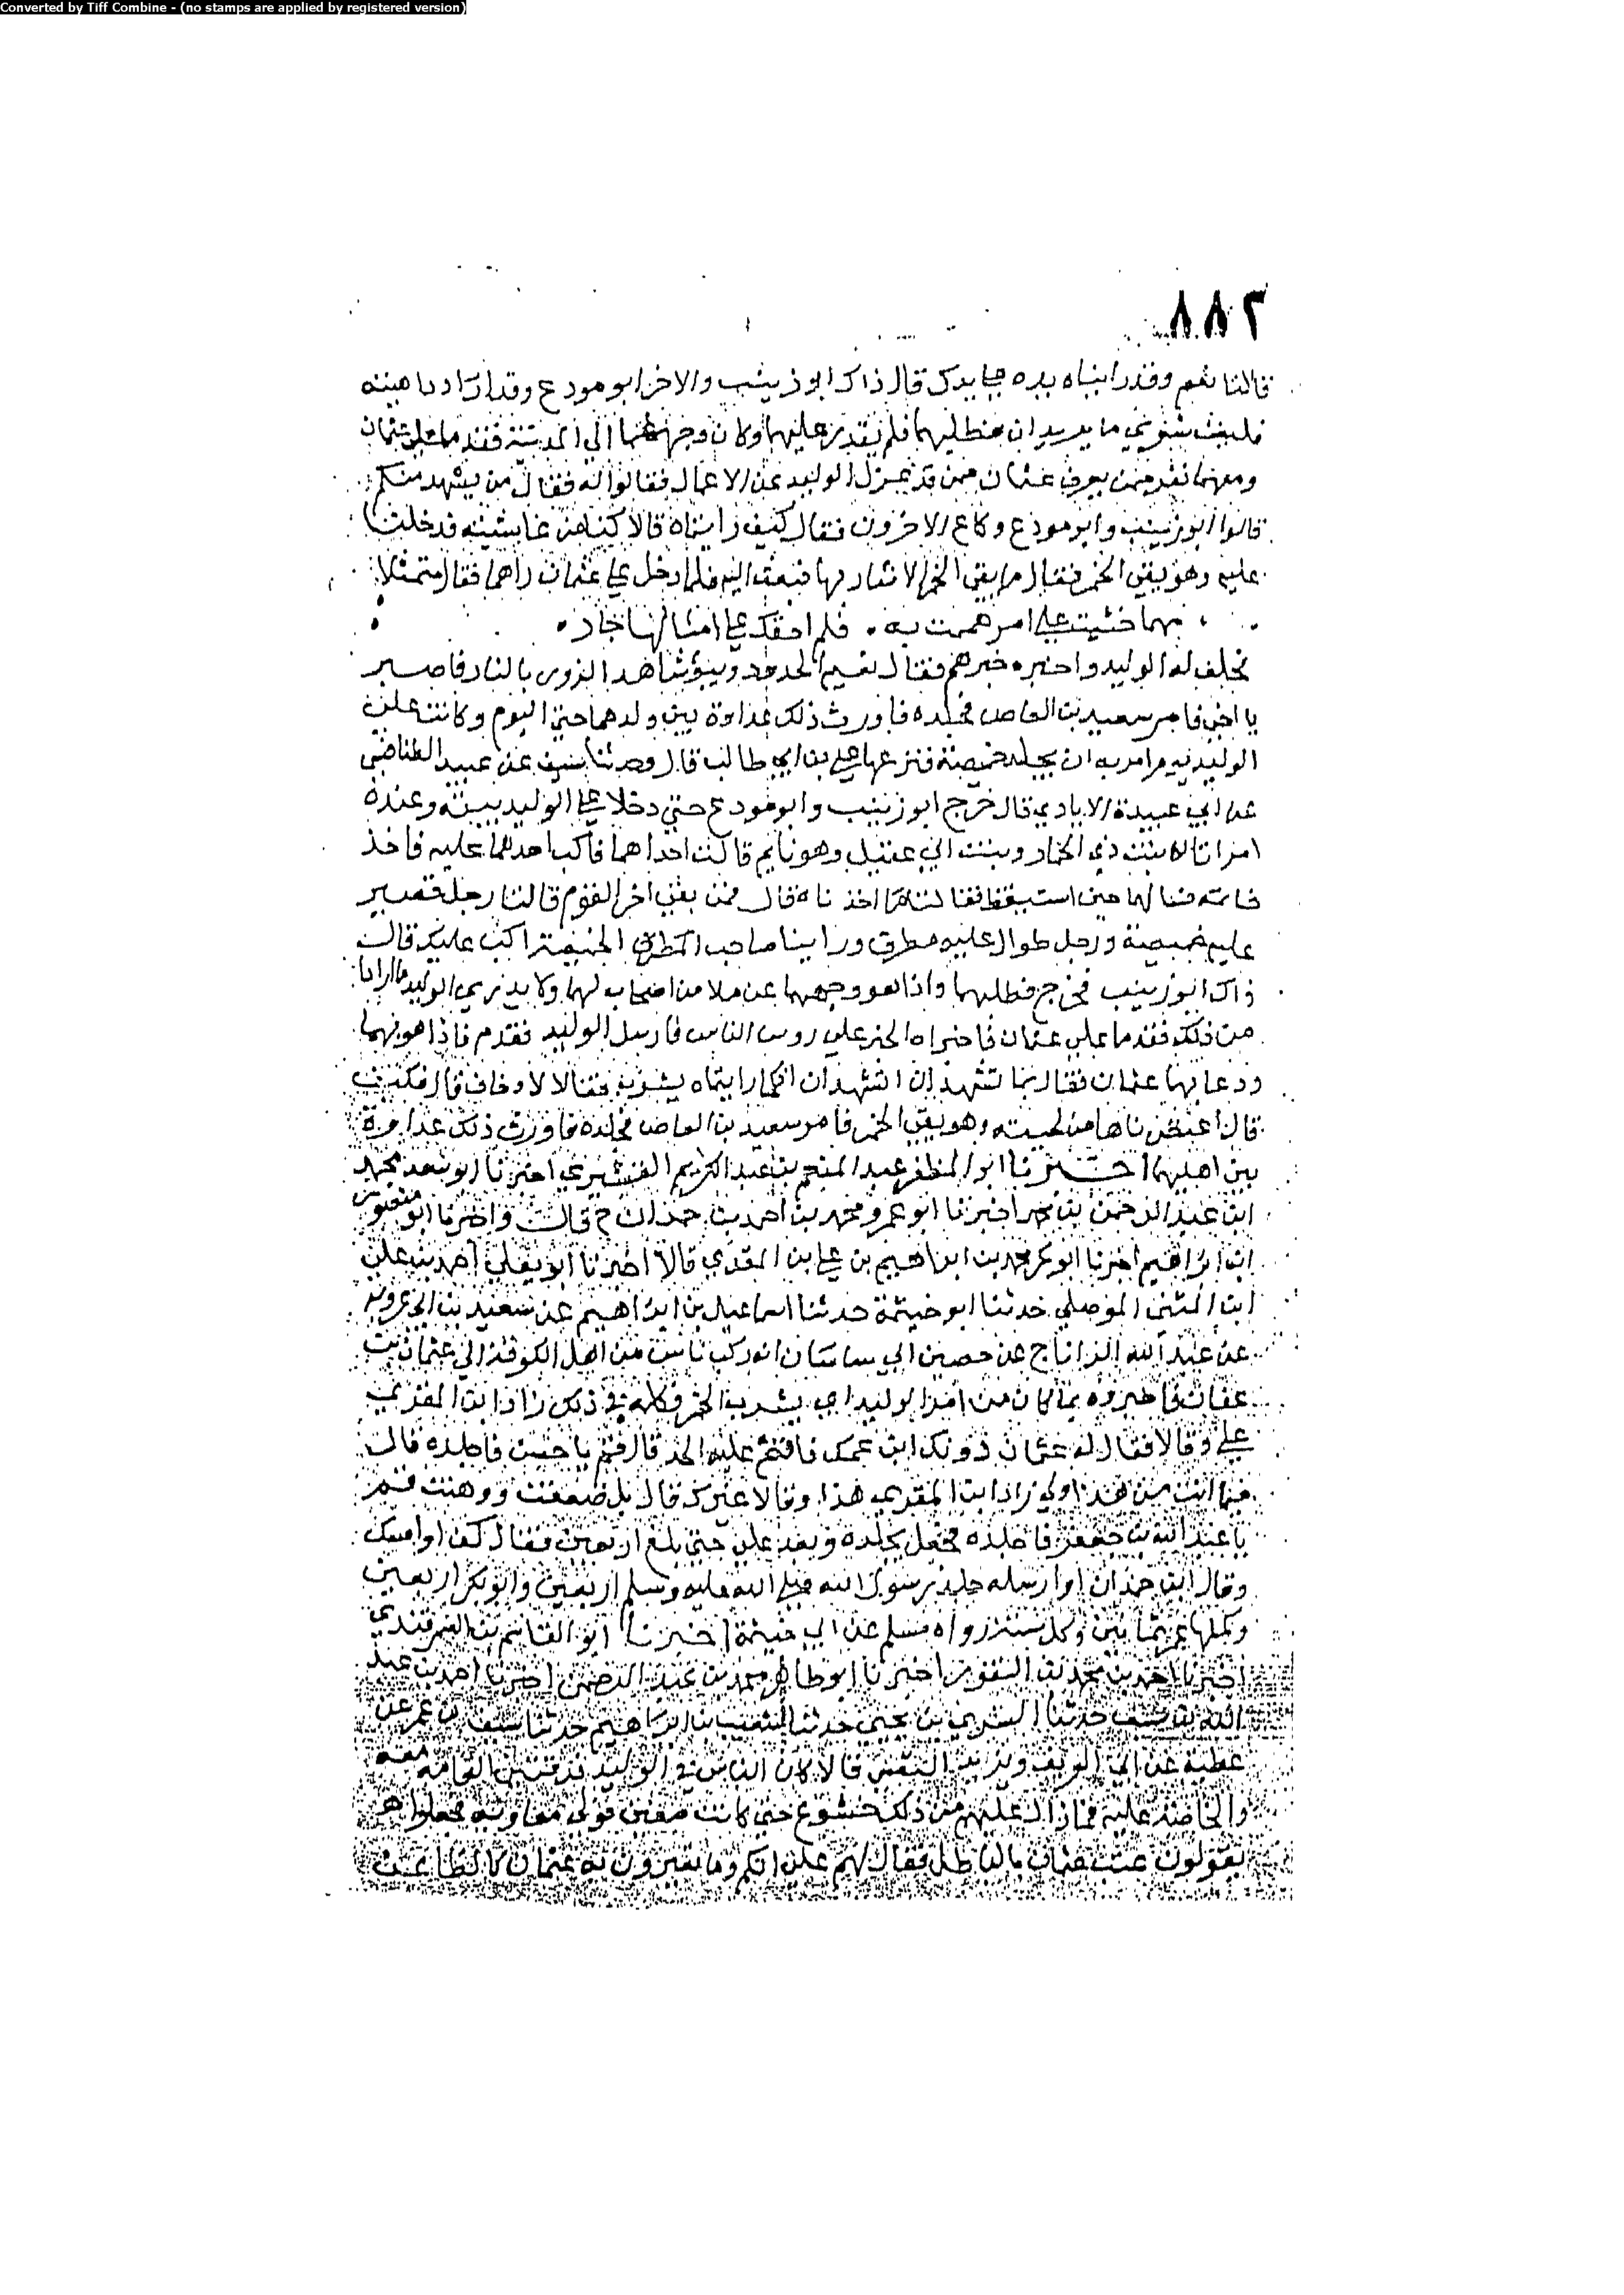 Converted by Tiff Combine - (no stamps are applied by registered version)
٢٨٨
قالتا نعم وقد رأيناه يده على يدك قال ذاك ابو زينب والاخر ابو مودع وقد ارادا
فلم يقدر عليهما وكان وجههما الى المدينة فقدما على عثمان
ومعهما نفر ممن يعرف عثمان ممن قد عزل الوليد عن الاعمال فقالوا له فقال من يشهد منكم
قالوا ابو زينب وابو مودع وكاع الاخرون فقال كيف رأيتماه قالا كنا من غاشيته فدخلنا
عليه وهو يقئ الخمر فقال ما يقئ الخمر الا شاربها فبعث اليه فلما دخل على عثمان راهما فقال متمثلا
خشيت على امر هممت به فلم اخفك على امثالها حار
فحلف له الوليد واخبره خبرهم فقال نقيم الحدود ويبؤ شاهد الزور بالنار فاصبر
يا اخي فامر سعيد بن العاص فجلده فاورث ذلك عداوة بين ولدهما حتى اليوم وكانت على
الوليد يوم امر به ان يجلد خميصة فنزعها علي بن ابي طالب قال وحدثنا سيف عن عبيد الطنافسي
عن ابي عبيدة الايادي قال خرج ابو زينب وابو مودع حتى دخلا على الوليد بيته وعنده
امراتان بنت ذي الخمار وبنت ابي عقيل وهو نايم قالت احداهما فاكب احدهما عليه فاخذ
خاتمه فسالهما حين استيقظ فقالتا ما اخذناه قال من بقي اخر القوم قالتا رجل قصير
عليه خميصة ورجل طوال عليه مطرف وراينا صاحب الخميصة اكب عليك قال
ذاك ابو زينب فخرج فطلبهما واذا هو وجههما عن ملا من اصحاب لهما ولا يدري الوليد ما ارادا
من ذلك فقدما على عثمان فاخبراه الخبر على روس الناس فارسل الى الوليد فقدم فاذا هو بهما
ودعا بهما عثمان فقال بما تشهدان اتشهدان انكما رايتماه يشربه فقالا لا وخافا قال فكيف
قال اعتصرناها من لحيته وهو يقئ الخمر فامر سعيد بن العاص فجلده فاورث ذلك عداوة
بين اهليهما اخبرنا ابو المظفر عبد المنعم بن عبد الكريم القشيري اخبرنا ابو سعد محمد
ابن عبد الرحمن بن محمد اخبرنا ابو عمرو محمد بن احمد بن حمدان ح قال واخبرنا ابو منصور
ابن ابراهيم اخبرنا ابو بكر محمد بن ابراهيم بن علي ابن المقري قالا اخبرنا ابو يعلي احمد بن علي
ابن المثنى الموصلي حدثنا ابو خيثمة حدثنا اسماعيل بن ابراهيم عن سعيد بن ابي عروبة
عن عبد الله الداناج عن حصين ابي ساسان انه ركب ناس من اهل الكوفة الى عثمان بن
عفان فاخبروه بما كان من امر الوليد اي بشربه الخمر فكلمه في ذلك زاد ابن المقري
علي وقالا فقال له عثمان دونك ابن عمك فاقم عليه الحد قال قم يا حسن فاجلده قال
فيما انت من هذا ولي زاد ابن المقري هذا وقالا غيرك قال بل ضعفت ووهنت قم
يا عبد الله بن جعفر فاجلده فجعل يجلده ويعد علي حتى بلغ اربعين فقال كف او امسك
وقال ابن حمدان او ارسله جلد رسول الله صلى الله عليه وسلم اربعين وابو بكر اربعين
وكملها عمر ثمانين وكل سنة رواه مسلم عن ابي خيثمة اخبرنا ابو القاسم بن السمرقندي
اخبرنا احمد بن محمد بن النقور اخبرنا ابو طاهر محمد بن عبد الرحمن اخبرنا احمد بن عبد
الله بن سيف حدثنا السري بن يحيى حدثنا شعيب بن ابراهيم حدثنا سيف بن عمر عن
عطية عن ابي الغريف ويزيد الفقعسي قالا كان الناس في الوليد فرقتين العامة معه
والخاصة عليه فما زال عليهم من ذلك خشوع حتى كانت صفين فولى معاوية فجعلوا
يقولون عيب عثمان بالباطل فقال لهم علي انكم وما تعيرون به عثمان كالطاعن